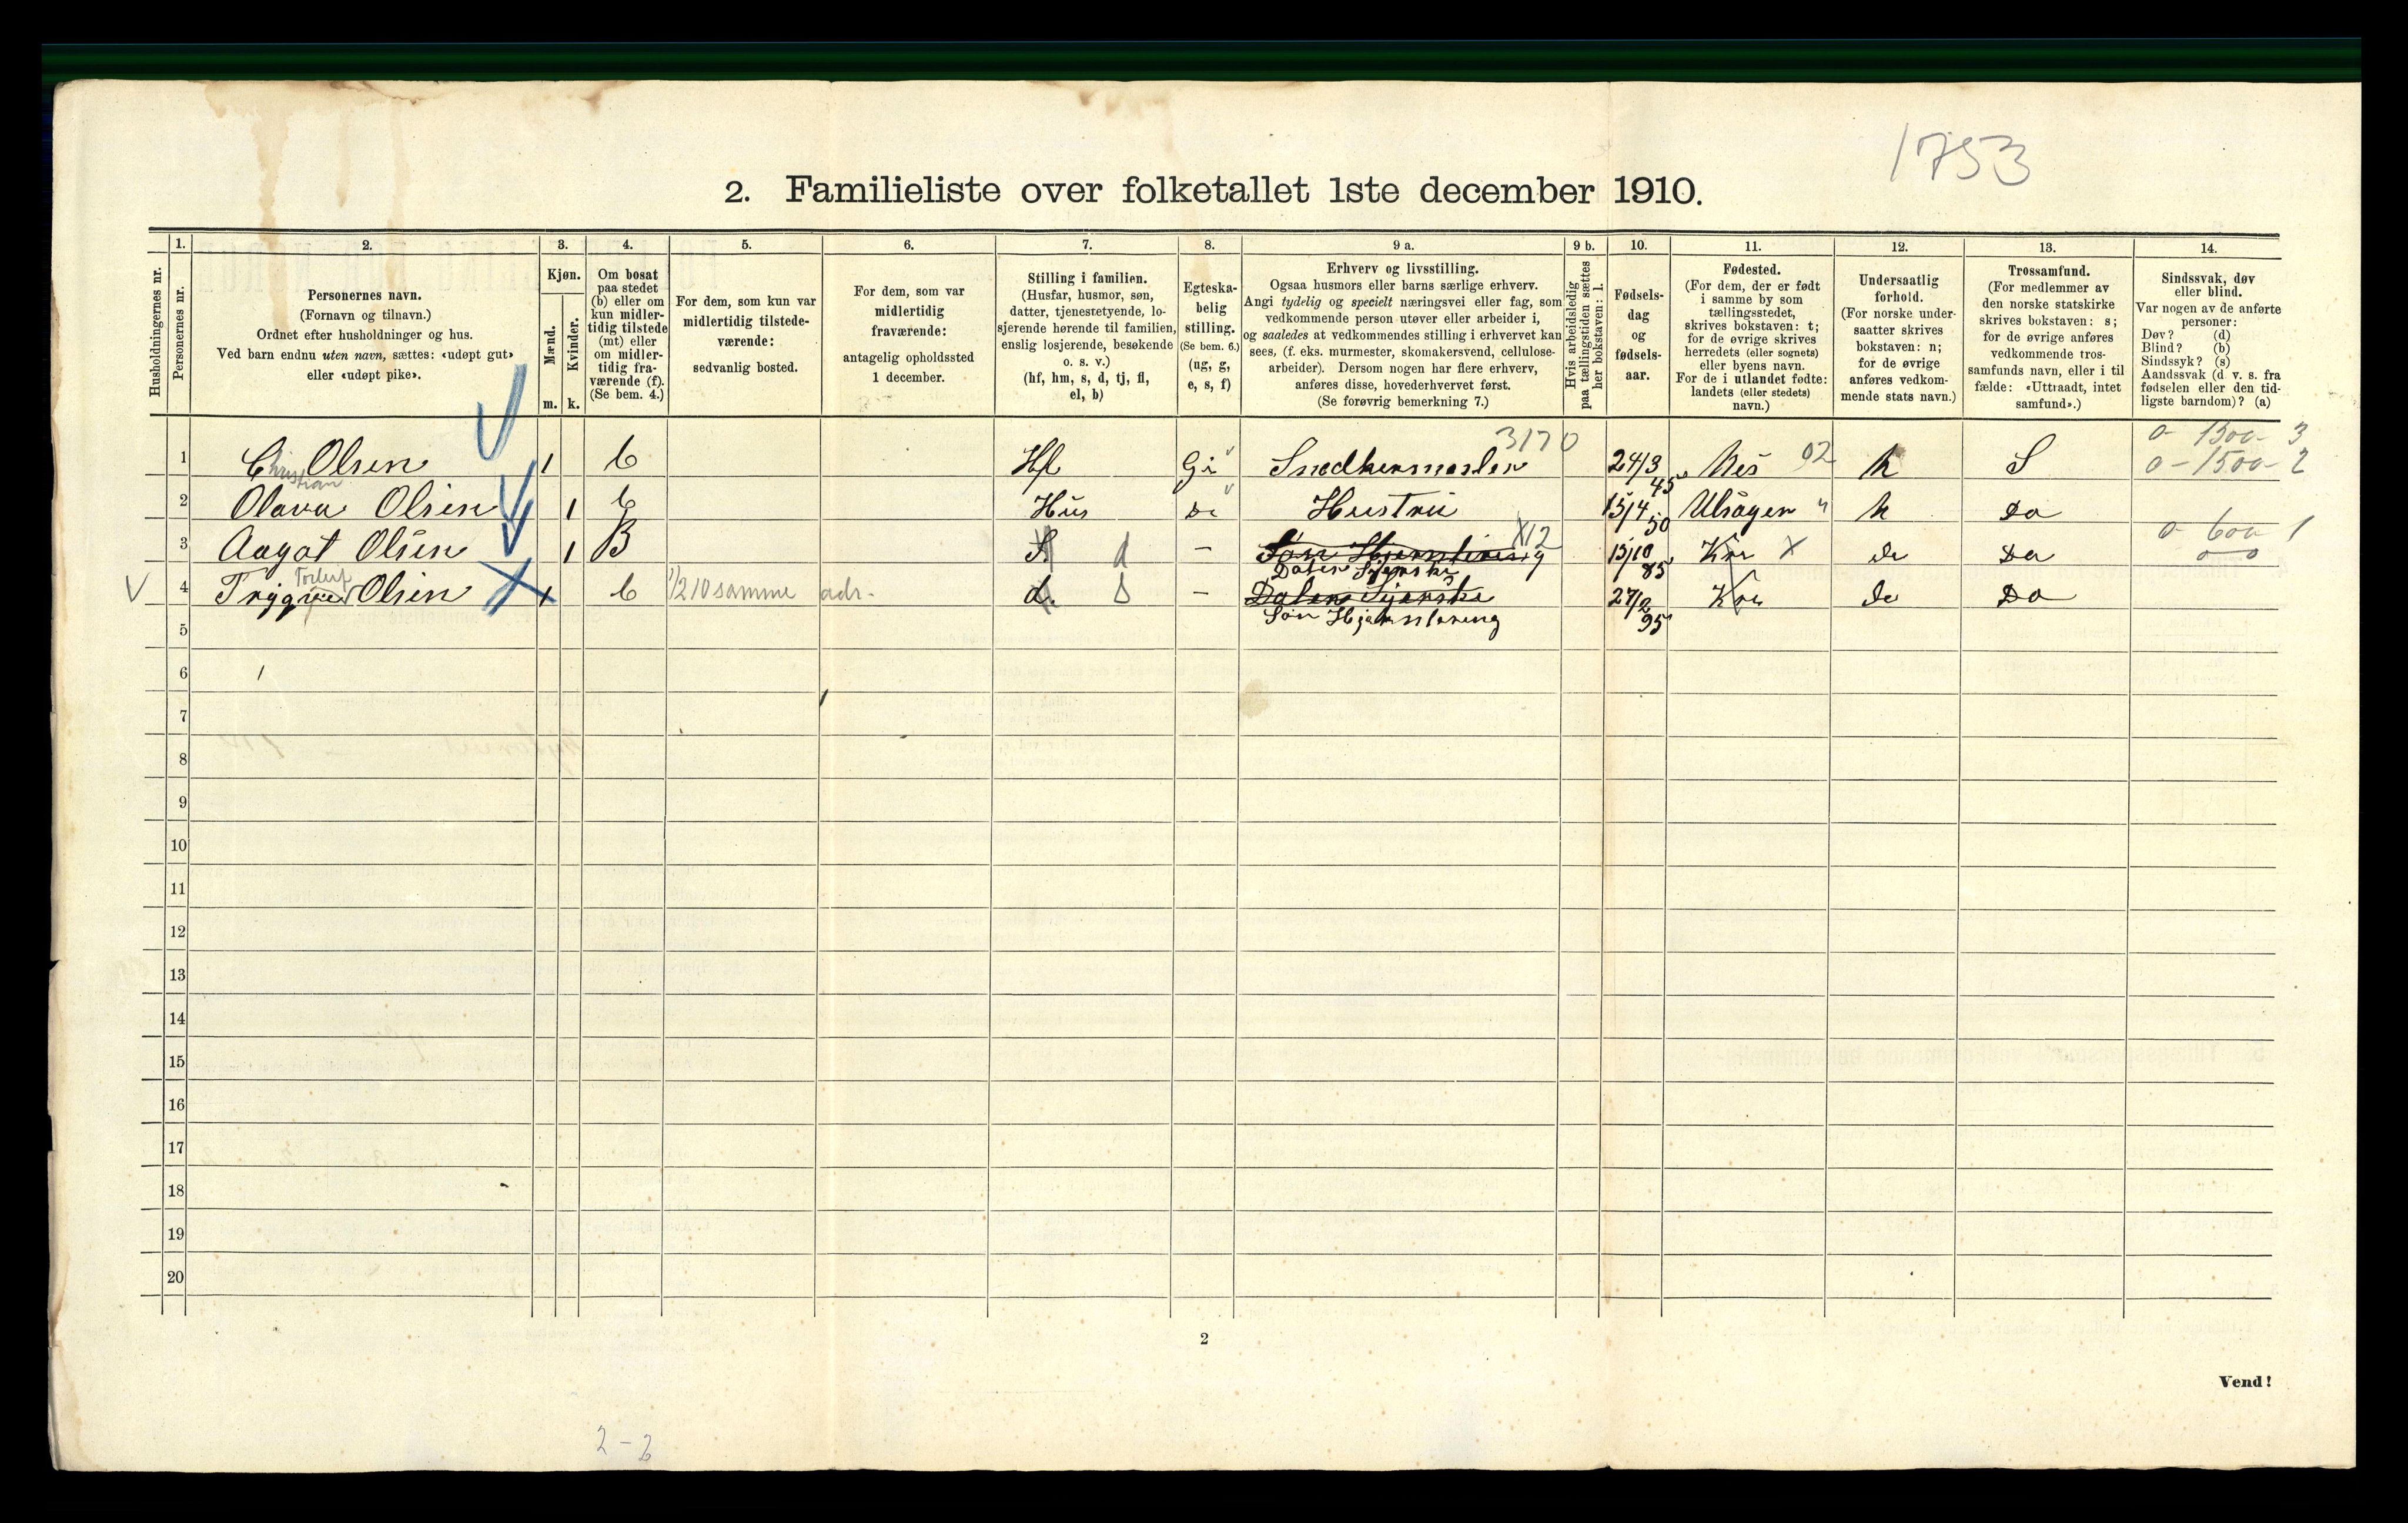 1753
2. Familieliste over folketallet 1ste december 1910.
Husholdningernes nr.
1.
Personernes nr.
2.
Personernes navn.
(Fornavn og tilnavn.)
Ordnet efter husholdninger og hus.
Ved barn endnu uten navn, sættes: «udøpt gut»
eller «udøpt pike».
3.
Kjøn.
Mænd.
Kvinder.
m.
k.
4.
Om bosat
paa stedet
(b) eller om
kun midler-
tidig tilstede
(mt) eller
om midler-
tidig fra-
værende (f).
(Se bem. 4.)
5.
For dem, som kun var
midlertidig tilstede-
værende:
sedvanlig bosted.
6.
For dem, som var
midlertidig
fraværende:
antagelig opholdssted
1 december.
7.
Stilling i familien.
(Husfar, husmor, søn,
datter, tjenestetyende, lo-
sjerende hørende til familien,
enslig losjerende, besøkende
o. s. v.)
(hf, hm, s, d, tj, fl,
el, b)
8.
Egteska-
belig
stilling.
(Se bem. 6.)
(ug, g,
e, s, f)
9 a.
Erhverv og livsstilling.
Ogsaa husmors eller barns særlige erhverv.
Angi tydelig og specielt næringsvei eller fag, som
vedkommende person utøver eller arbeider i,
og saaledes at vedkommendes stilling i erhvervet kan
sees, (f. eks. murmester, skomakersvend, cellulose-
arbeider). Dersom nogen har flere erhverv,
anføres disse, hovederhvervet først.
(Se forøvrig bemerkning 7.)
9 b.
Hvis arbeidsledig
paa tællingstiden sættes
her bokstaven: l.
10.
Fødsels-
dag
og
fødsels-
aar.
11.
Fødested.
(For dem, der er født
i samme by som
tællingsstedet,
skrives bokstaven: t;
for de øvrige skrives
herredets (eller sognets)
eller byens navn.
For de i utlandet fødte:
landets (eller stedets)
navn.)
12.
Undersaatlig
forhold.
(For norske under-
saatter skrives
bokstaven: n;
for de øvrige
anføres vedkom-
mende stats navn.)
13.
Trossamfund.
(For medlemmer av
den norske statskirke
skrives bokstaven: s;
for de øvrige anføres
vedkommende tros-
samfunds navn, eller i til
fælde: «Uttraadt, intet
samfund».)
14.
Sindssvak, døv
eller blind.
Var nogen av de anførte
personer:
Døv? (d)
Blind? (b)
Sindssyk? (s)
Aandssvak (d v. s. fra
fødselen eller den tid-
ligste barndom)? (a)
3170 0- 1500- 3
1 Christian Olsen 1 b Hf Gi Snedkermester 24/3 45 Nes 02 n S 0-1500-2
2 Olava Olsen 1 b Hus Do Hustru 15/4 50 n Do
3 Aagot Olsen 1 B S d - Søn Hjemløsning X12 15/10 85 Kra X do Do 0 600 1
Datter Syerske 0 0
V 4 Trygve Torleif Olsen 1 b 1/2 10 samme adr. d. S - Datter Syerske 27/2 95 Kra do Do
5 Søn
6
7
8
9
10
11
12
13
14
15
16
17
18
19
20
2
Vend!
2-2